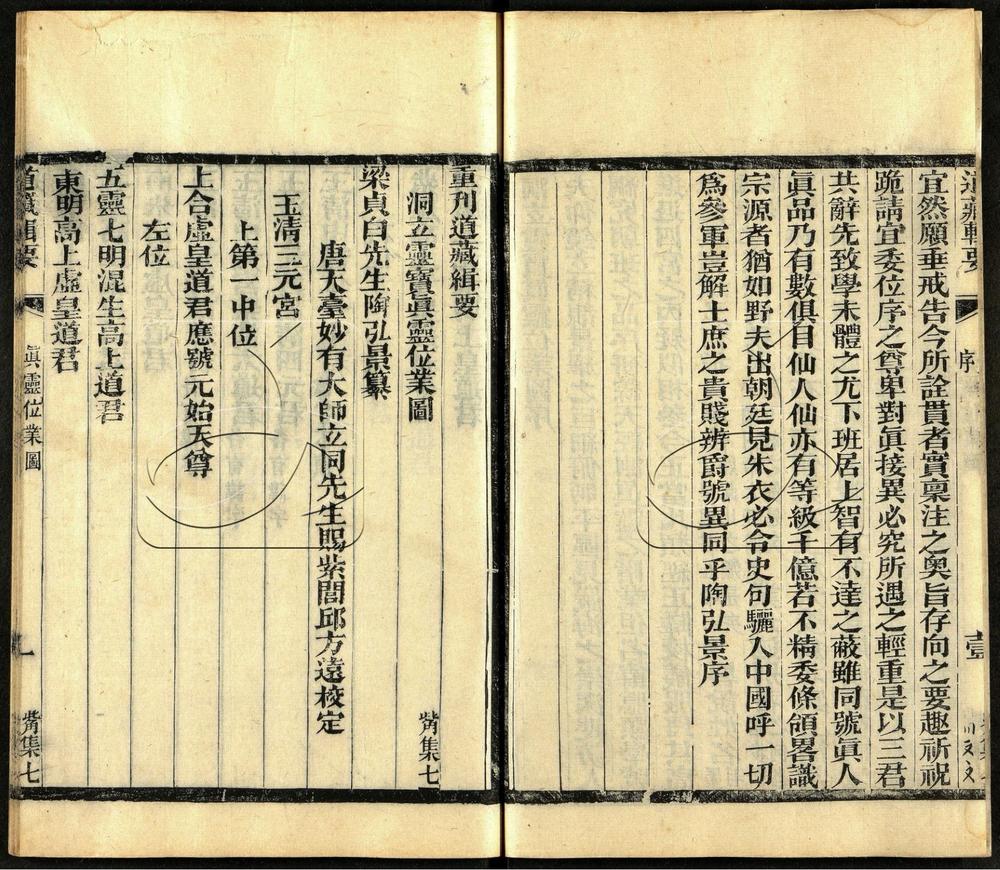 道藏輯要
序
壹
宜然願垂戒告今所詮貫者實稟注之奧旨存向之要趣祈祝
跪請宜委位序之尊卑對眞接異必究所遇之輕重是以三君
共辭先致學未體之尤下班居上智有不達之蔽雖同號眞人
眞品乃有數俱目仙人仙亦有等級千億若不精委條領畧識
宗源者猶如野夫出朝廷見朱衣必令史句驪入中國呼一切
爲參軍豈解士庶之貴賤辨爵號異同乎陶弘景序
重刊道藏緝要
洞立靈寶眞靈位業圖
觜集七
梁貞白先生陶弘景纂
唐天臺妙有大師立同先生賜紫閭邱方遠校定
玉清三元宮
上第一中位
上合虛皇道君應號元始天尊
左位
五靈七明混生高上道君
東明高上虛皇道君
道藏輯要
眞靈位業圖
觜集七